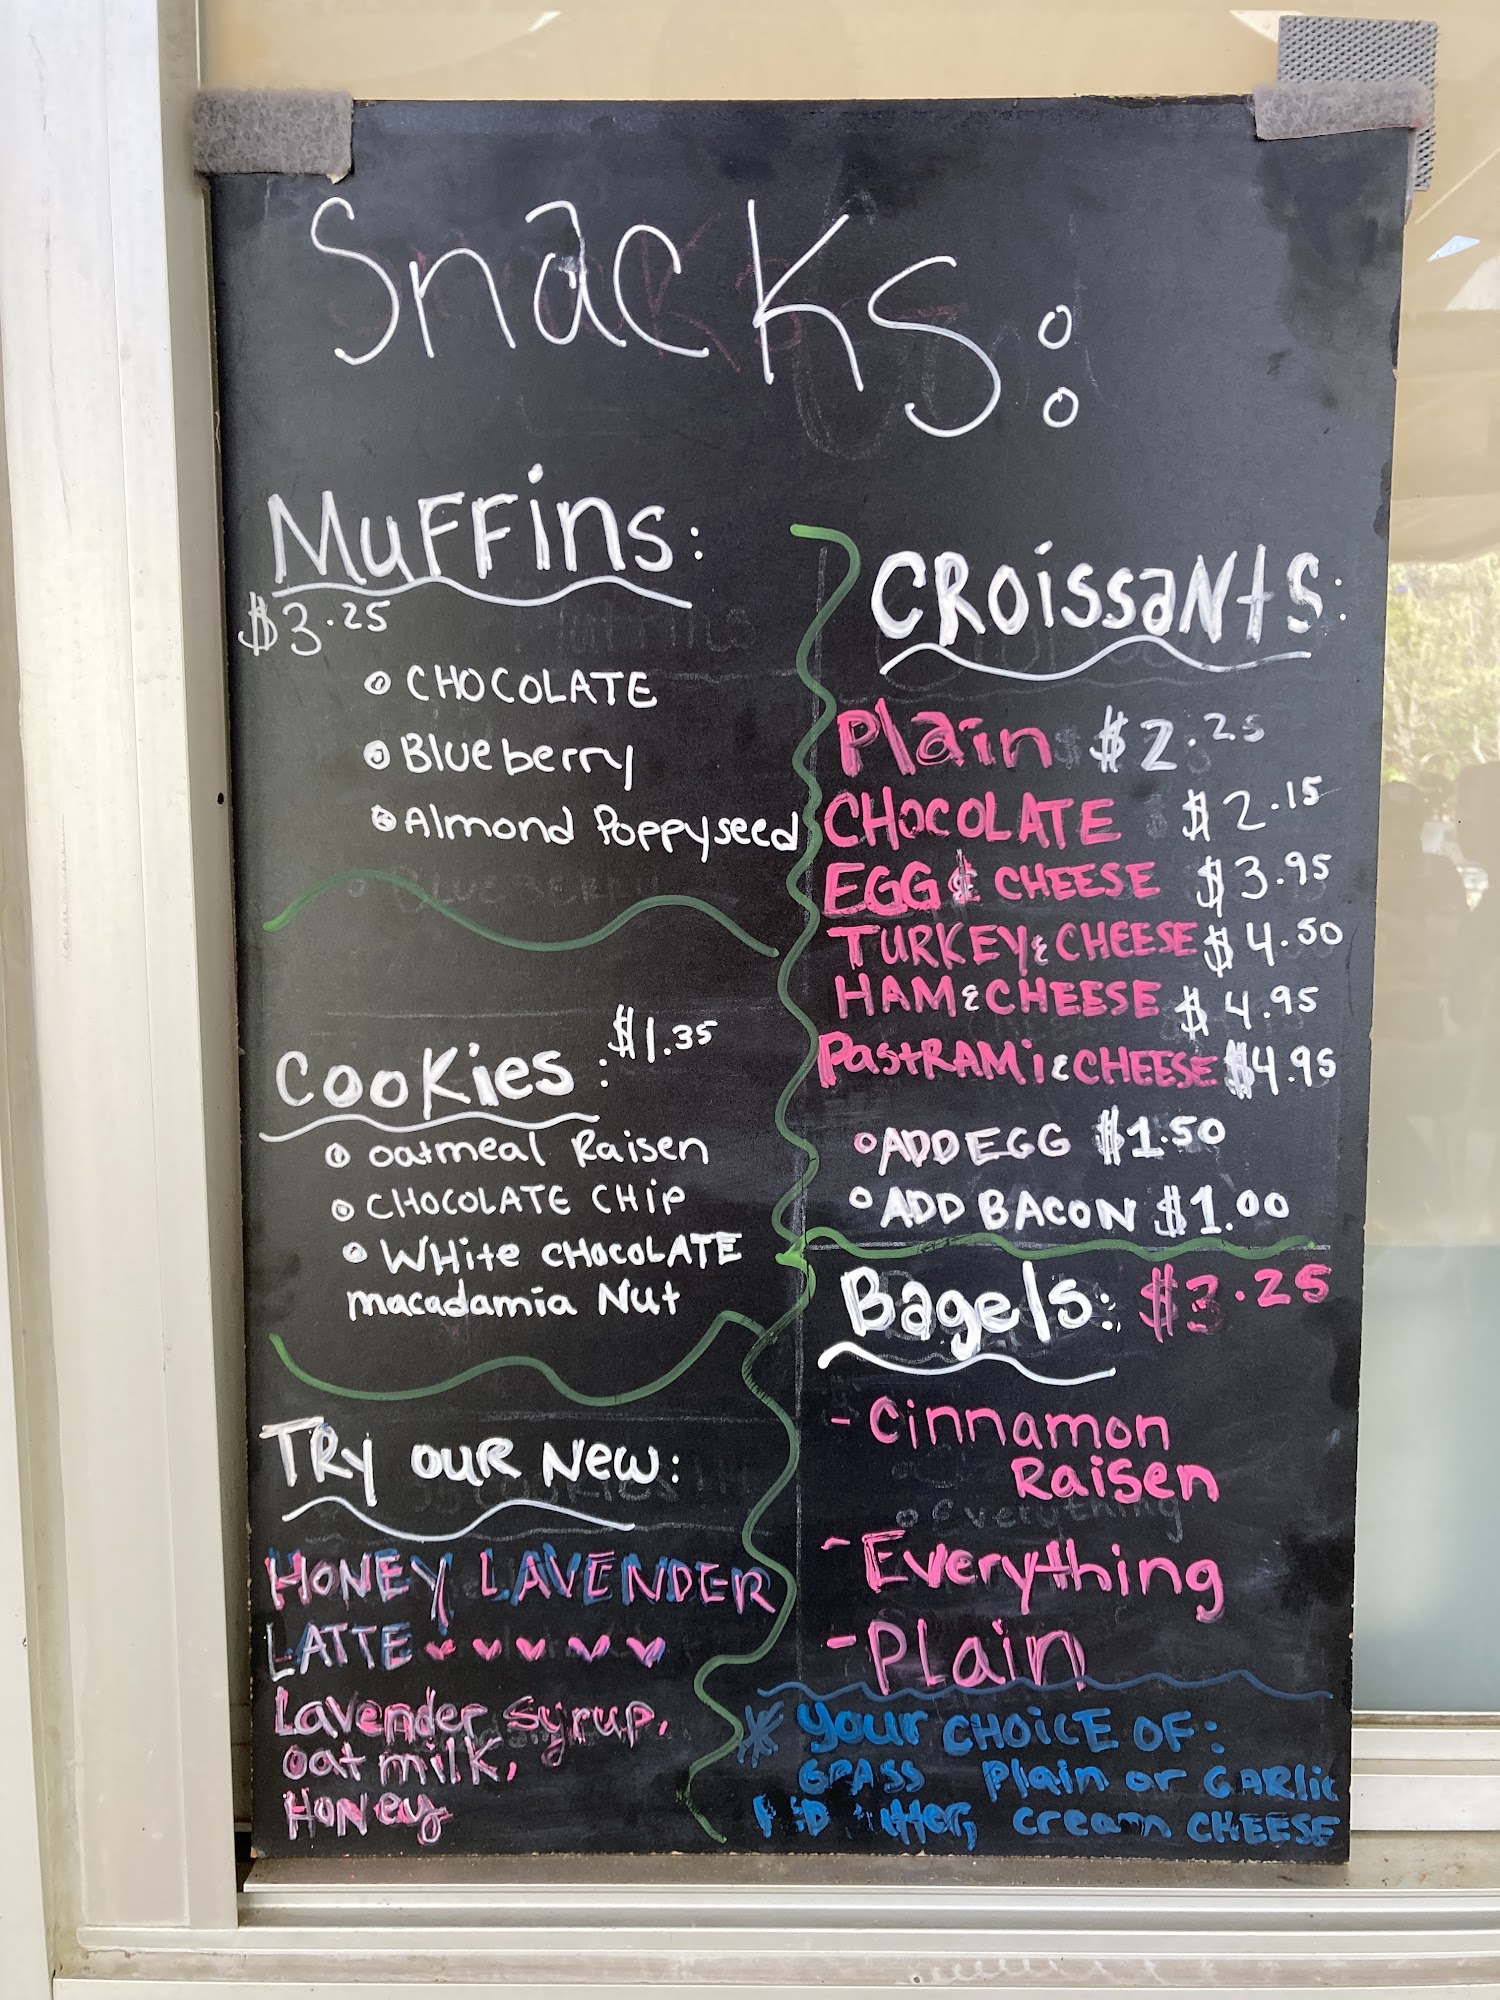 Snacks:
Muffins:
$3.25
CHOCOLATE
Blueberry
Almond Poppyseed
Cookies: $1.35
oatmeal Raisen
CHOCOLATE CHip
WHite CHOCOLATE
macadamia Nut
TRy OUR New:
HONEY LAVENDER
LATTE
Lavender syrup,
oat milk,
HONey
CROissaNts:
Plain $2.25
CHOCOLATE $2.15
EGG & CHEESE $3.95
TURKEY & CHEESE $4.50
HAM & CHEESE $4.95
PastRAMi & CHEESE $4.95
ADD EGG $1.50
ADD BACON $1.00
Bagels: $3.25
- Cinnamon
Raisen
- Everything
- Plain
* your CHOiCE OF:
GRASS Plain or GARlic
FED butter, cream CHEESE